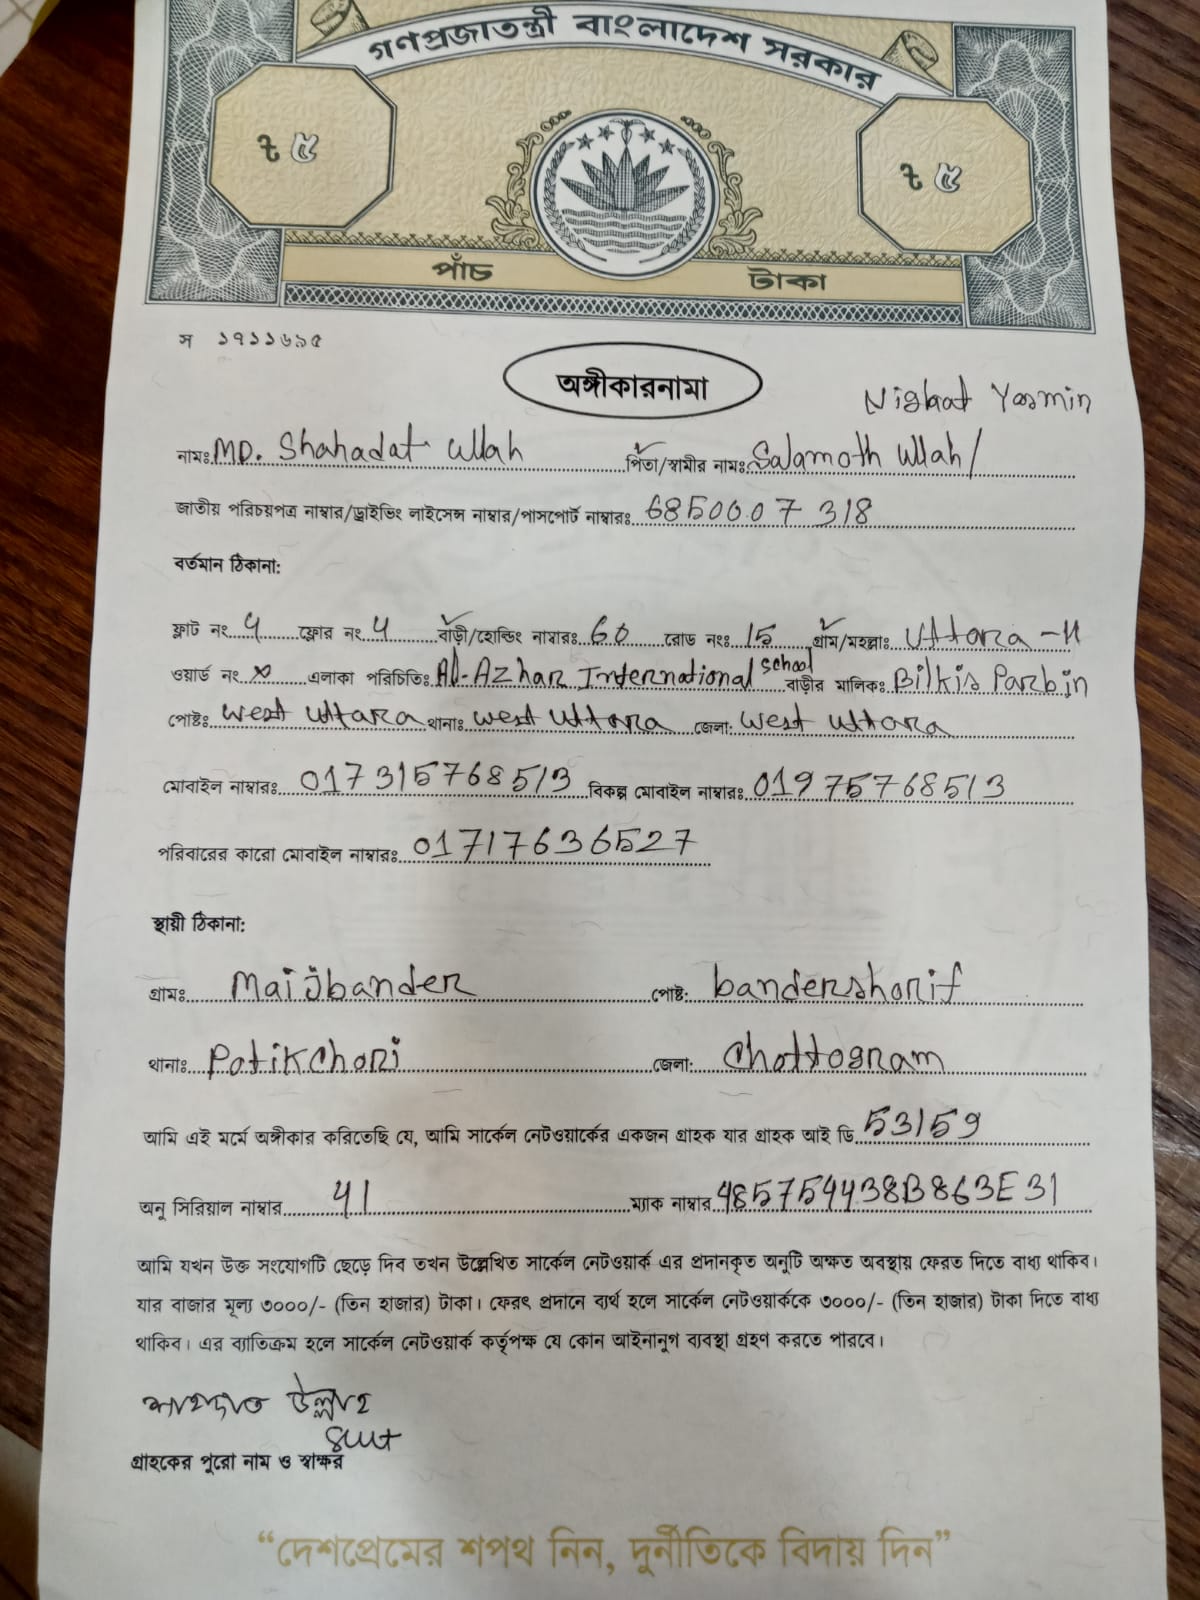 গণপ্রজাতন্ত্রী বাংলাদেশ সরকার
৳ ৫
৳ ৫
পাঁচ টাকা
স ১৭১১৬৯৫
অঙ্গীকারনামা
Nishat Yasmin
নামঃ MD. Shahadat ullah পিতা/স্বামীর নামঃ Salamoth Ullah/
জাতীয় পরিচয়পত্র নাম্বার/ড্রাইভিং লাইসেন্স নাম্বার/পাসপোর্ট নাম্বারঃ 6850007318
বর্তমান ঠিকানা:
ফ্লাট নং 4 ফ্লোর নং 4 বাড়ী/হোল্ডিং নাম্বারঃ 60 রোড নংঃ 15 গ্রাম/মহল্লাঃ Uttara -11
ওয়ার্ড নং x এলাকা পরিচিতিঃ Al-Azhar International school বাড়ীর মালিকঃ Bilkis Parbin
পোষ্টঃ west uttara থানাঃ west uttara জেলা: west uttara
মোবাইল নাম্বারঃ 01731576851/3 বিকল্প মোবাইল নাম্বারঃ 01975768513
পরিবারের কারো মোবাইল নাম্বারঃ 01717636527
স্থায়ী ঠিকানা:
গ্রামঃ Maijbander পোষ্ট: bandersharif
থানাঃ Patikchari জেলা: Chattogram
আমি এই মর্মে অঙ্গীকার করিতেছি যে, আমি সার্কেল নেটওয়ার্কের একজন গ্রাহক যার গ্রাহক আই ডি 53159
অনু সিরিয়াল নাম্বার 41 ম্যাক নাম্বার 485754438B863E31
আমি যখন উক্ত সংযোগটি ছেড়ে দিব তখন উল্লেখিত সার্কেল নেটওয়ার্ক এর প্রদানকৃত অনুটি অক্ষত অবস্থায় ফেরত দিতে বাধ্য থাকিব।
যার বাজার মূল্য ৩০০০/- (তিন হাজার) টাকা। ফেরৎ প্রদানে ব্যর্থ হলে সার্কেল নেটওয়ার্ককে ৩০০০/- (তিন হাজার) টাকা দিতে বাধ্য
থাকিব। এর ব্যাতিক্রম হলে সার্কেল নেটওয়ার্ক কর্তৃপক্ষ যে কোন আইনানুগ ব্যবস্থা গ্রহণ করতে পারবে।
শাহাদাত উল্লাহ
গ্রাহকের পুরো নাম ও স্বাক্ষর
“দেশপ্রেমের শপথ নিন, দুর্নীতিকে বিদায় দিন”